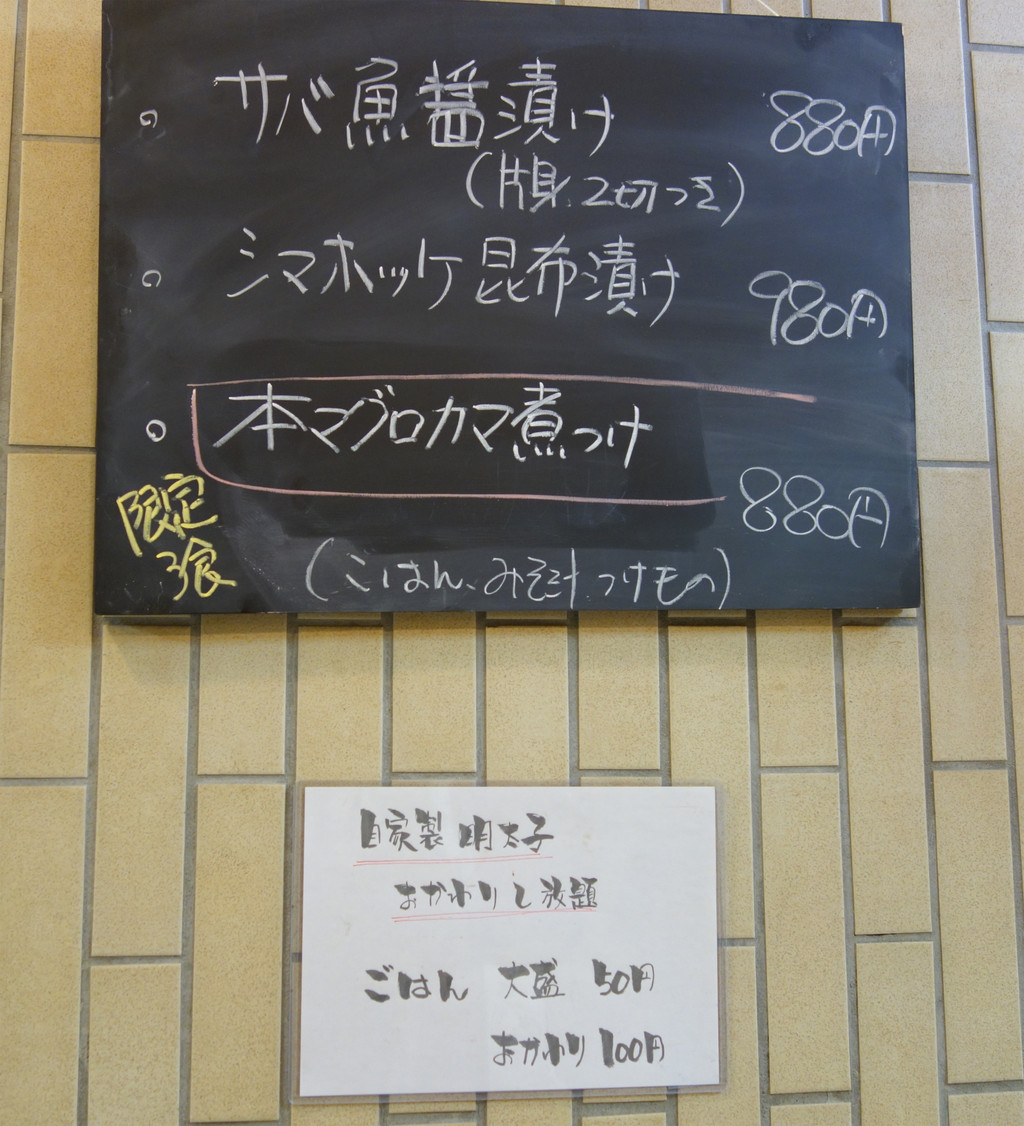 サバ魚醤漬け 880円
(片身、2切つき)
シマホッケ昆布漬け 980円
本マグロカマ煮つけ 880円
限定
3食
(ごはん、みそ汁、つけもの)
自家製 明太子
おかわりし放題
ごはん 大盛 50円
おかわり 100円